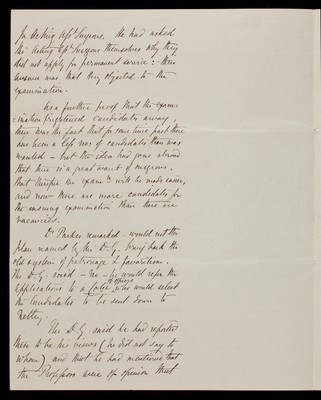 for Acting Asst Surgeons. He had asked
the Acting Asst Surgeons themselves why they
did not apply for permanent service: their
answer was that they objected to the
examination.
As a further proof that the exam-
-ination frightened candidates away,
there was the fact that for some time past there
had been a less no. of candidates than was
wanted - but the idea had gone abroad
that there is a great want of surgeons,
that therefore the exam.n will be made easier,
and now there are more candidates for
the ensuing examination than there are
vacancies.
Dr Parkes remarked would not the
plan named by the D.G. bring back the
old system of patronage & favouritism.
The D.G. said - no - he would refer the
applications to a Com. of officers who would select
the Candidates to be sent down to
Netley.
The D.G. said he had reported
these to be his views (he did not say to
whom) and that he had mentioned that
the Professors were of opinion that